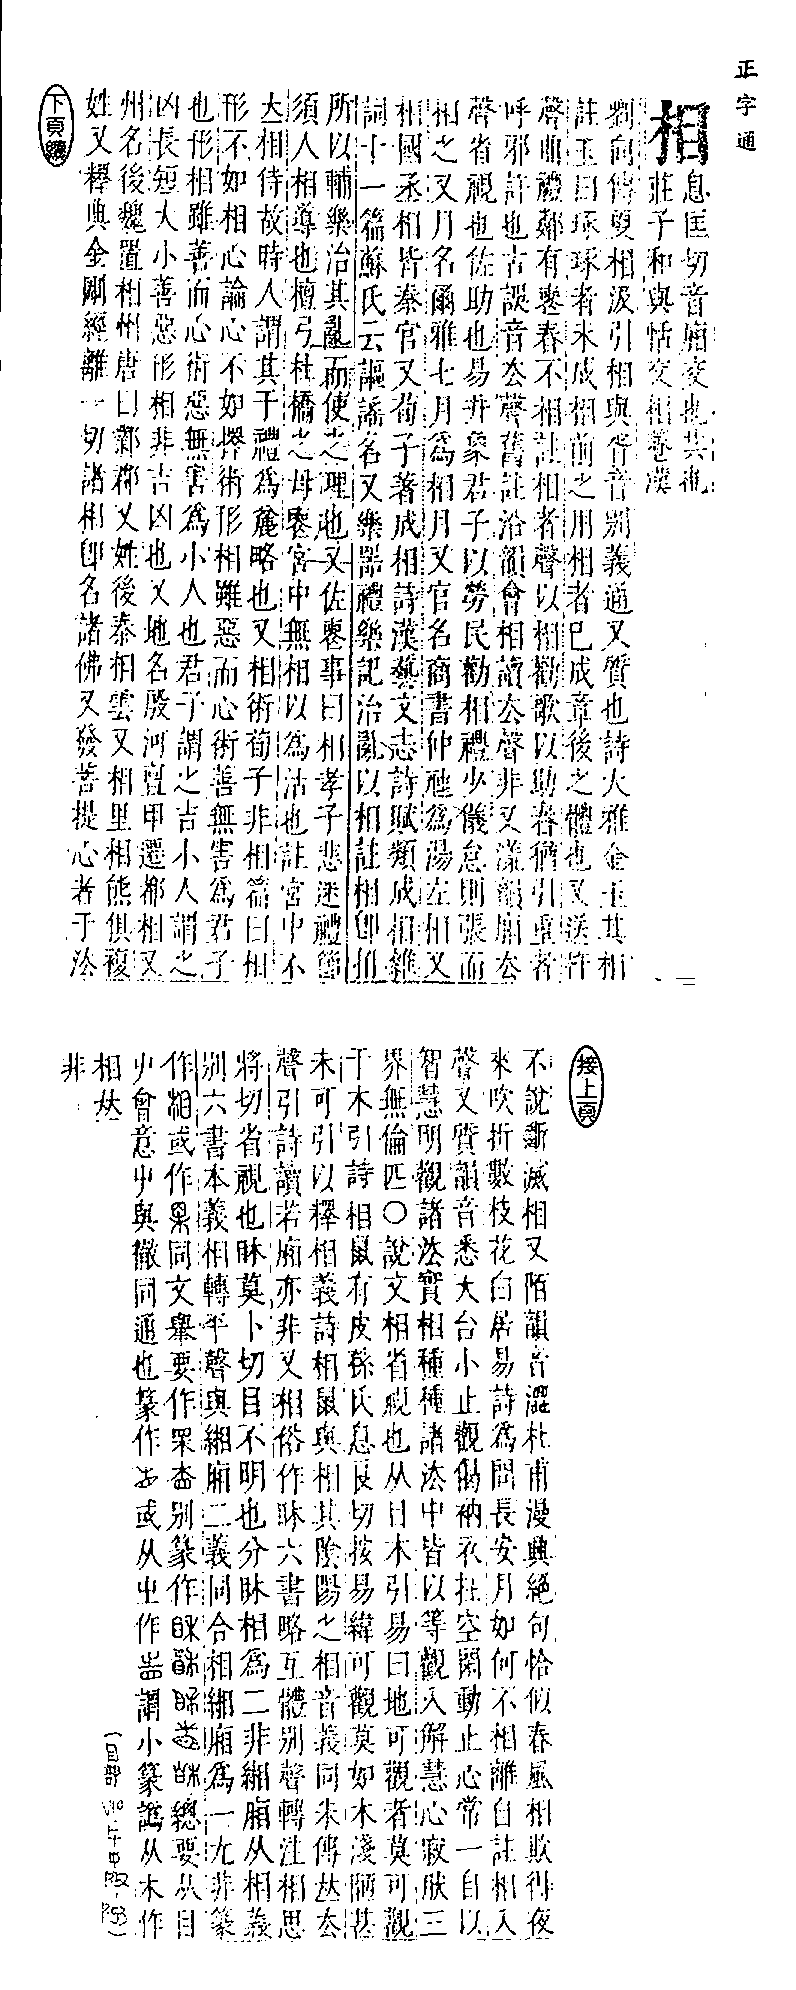 正字通
相
息匡切音廂交也共也
莊子和與恬交相養漢
劉向傳更相汲引相與胥音別義通又質也詩大雅金玉其相
註玉曰琢琢者未成相前之用相者已成章後之體也又送杵
聲曲禮鄰有喪舂不相註相者聲以相勸歌以助舂猶引重者
呼邪許也古誤音去聲舊註沿韻會相讀去聲非又漾韻廂去
聲省視也佐助也易井象君子以勞民勸相禮少儀怠則張而
相之又月名爾雅七月為相月又官名商書仲虺為湯左相又
相國丞相皆秦官又荀子著成相詩漢藝文志詩賦類成相雜
詞十一篇蘇氏云謳謠名又樂器禮樂記治亂以相註相即拊
所以輔樂治其亂而使之理也又佐喪事曰相孝子悲迷禮節
須人相導也檀弓杜橋之母喪宮中無相以為沽也註宮中不
立相侍故時人謂其于禮為麄略也又相術荀子非相篇曰相
形不如相心論心不如擇術形相雖惡而心術善無害為君子
也形相雖善而心術惡無害為小人也君子謂之吉小人謂之
凶長短大小善惡形相非吉凶也又地名殷河亶甲遷都相又
州名後魏置相州唐曰鄴郡又姓後秦相雲又相里相熊俱複
姓又釋典金剛經離一切諸相即名諸佛又發菩提心者于法
下頁續
接上頁
不說斷滅相又陌韻音澀杜甫漫興絕句恰似春風相欺得夜
來吹折數枝花白居易詩為問長安月如何不相離自註相入
聲又質韻音悉天台小止觀偈衲衣拄空閑動止心常一自以
智慧明觀諸法實相種種諸法中皆以等觀入解慧心寂然三
界無倫匹○說文相省視也从目木引易曰地可觀者莫可觀
于木引詩相鼠有皮孫氏息良切按易緯可觀莫如木淺陋甚
未可引以釋相義詩相鼠與相其陰陽之相音義同朱傳𠀤去
聲引詩讀若廂亦非又相俗作眜六書略互體別聲轉注相思
將切省視也眜莫卜切目不明也分眜相為二非緗廂从相義
別六書本義相轉平聲與緗廂二義同合相緗廂為一尤非篆
屮會意屮與徹同通也篆作
相𠀤
非